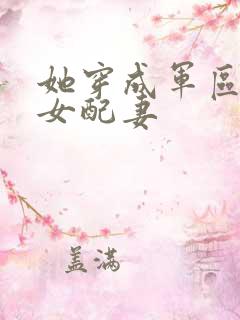 她穿成军区
女配妻
盖满